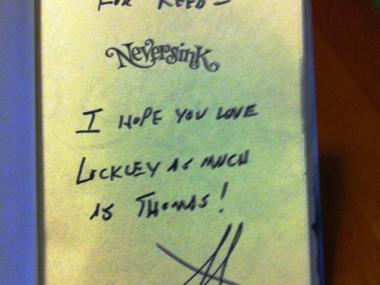 FOR REED –
Neversink
I HOPE YOU LOVE
LOCKLEY AS MUCH
AS THOMAS!